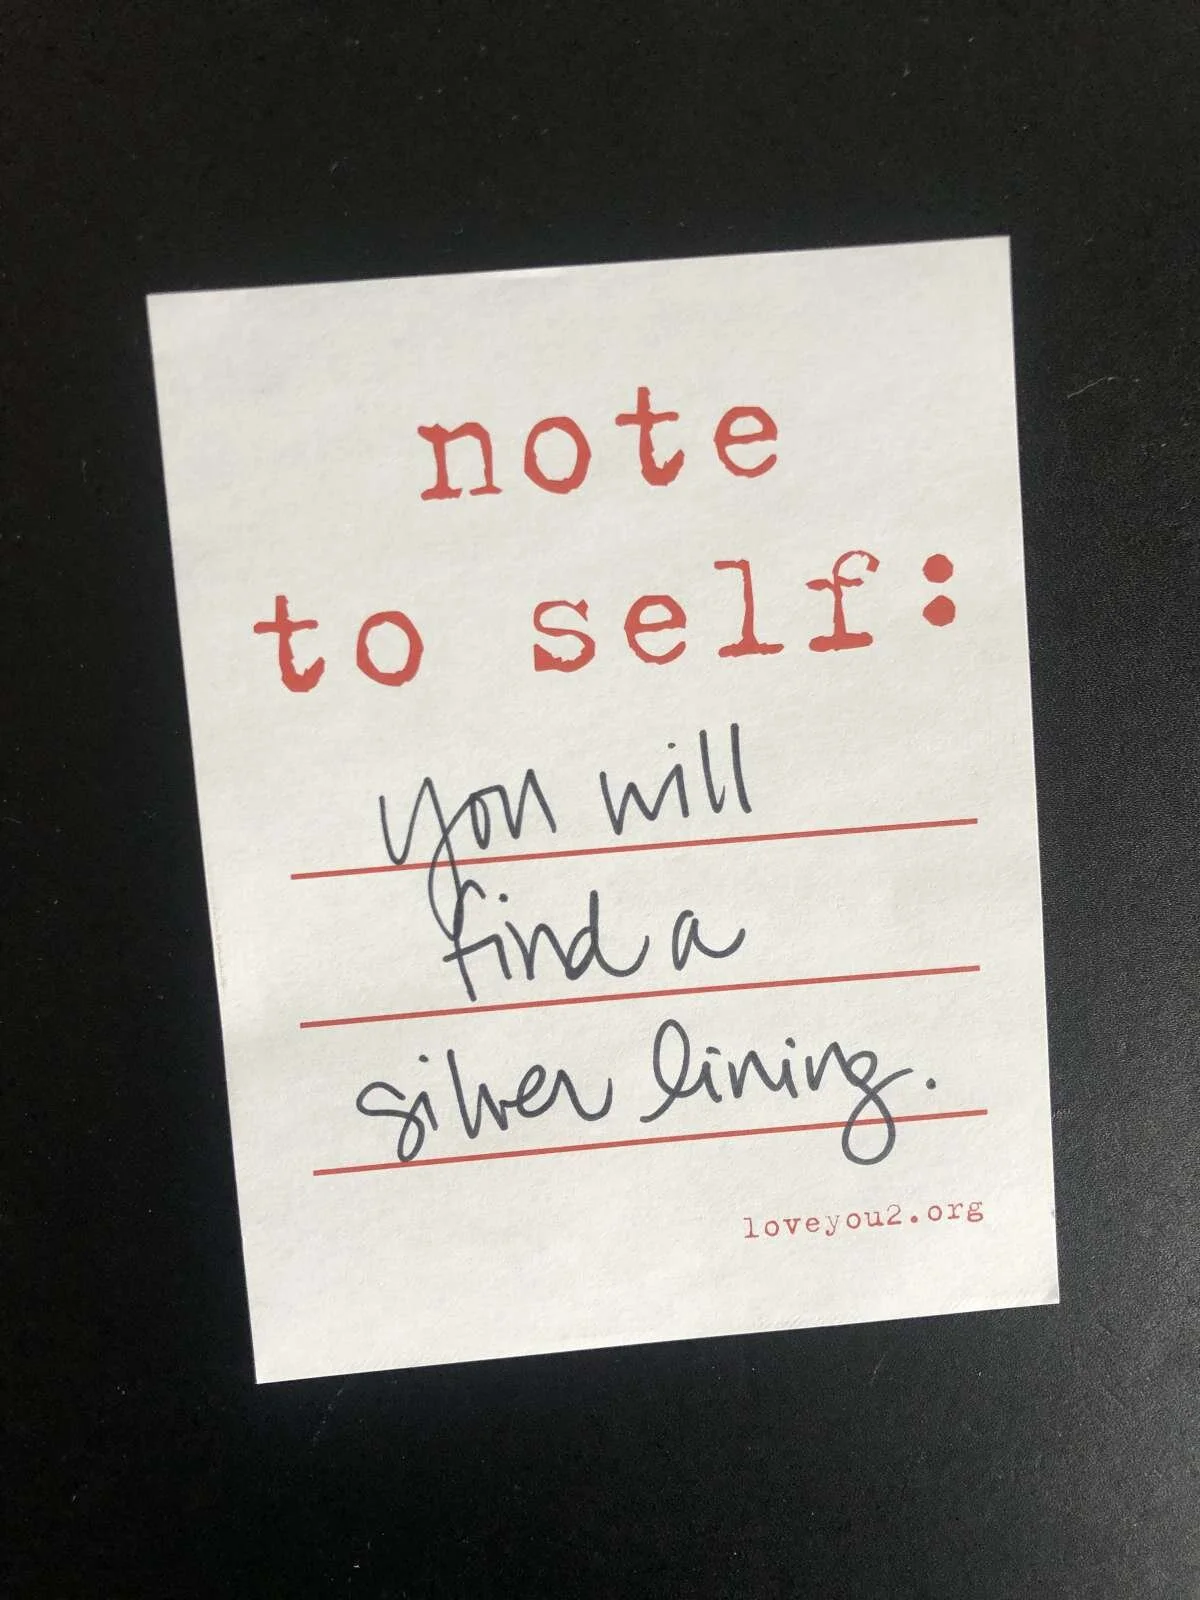 note
to self:
you will
find a
silver lining.
loveyou2.org